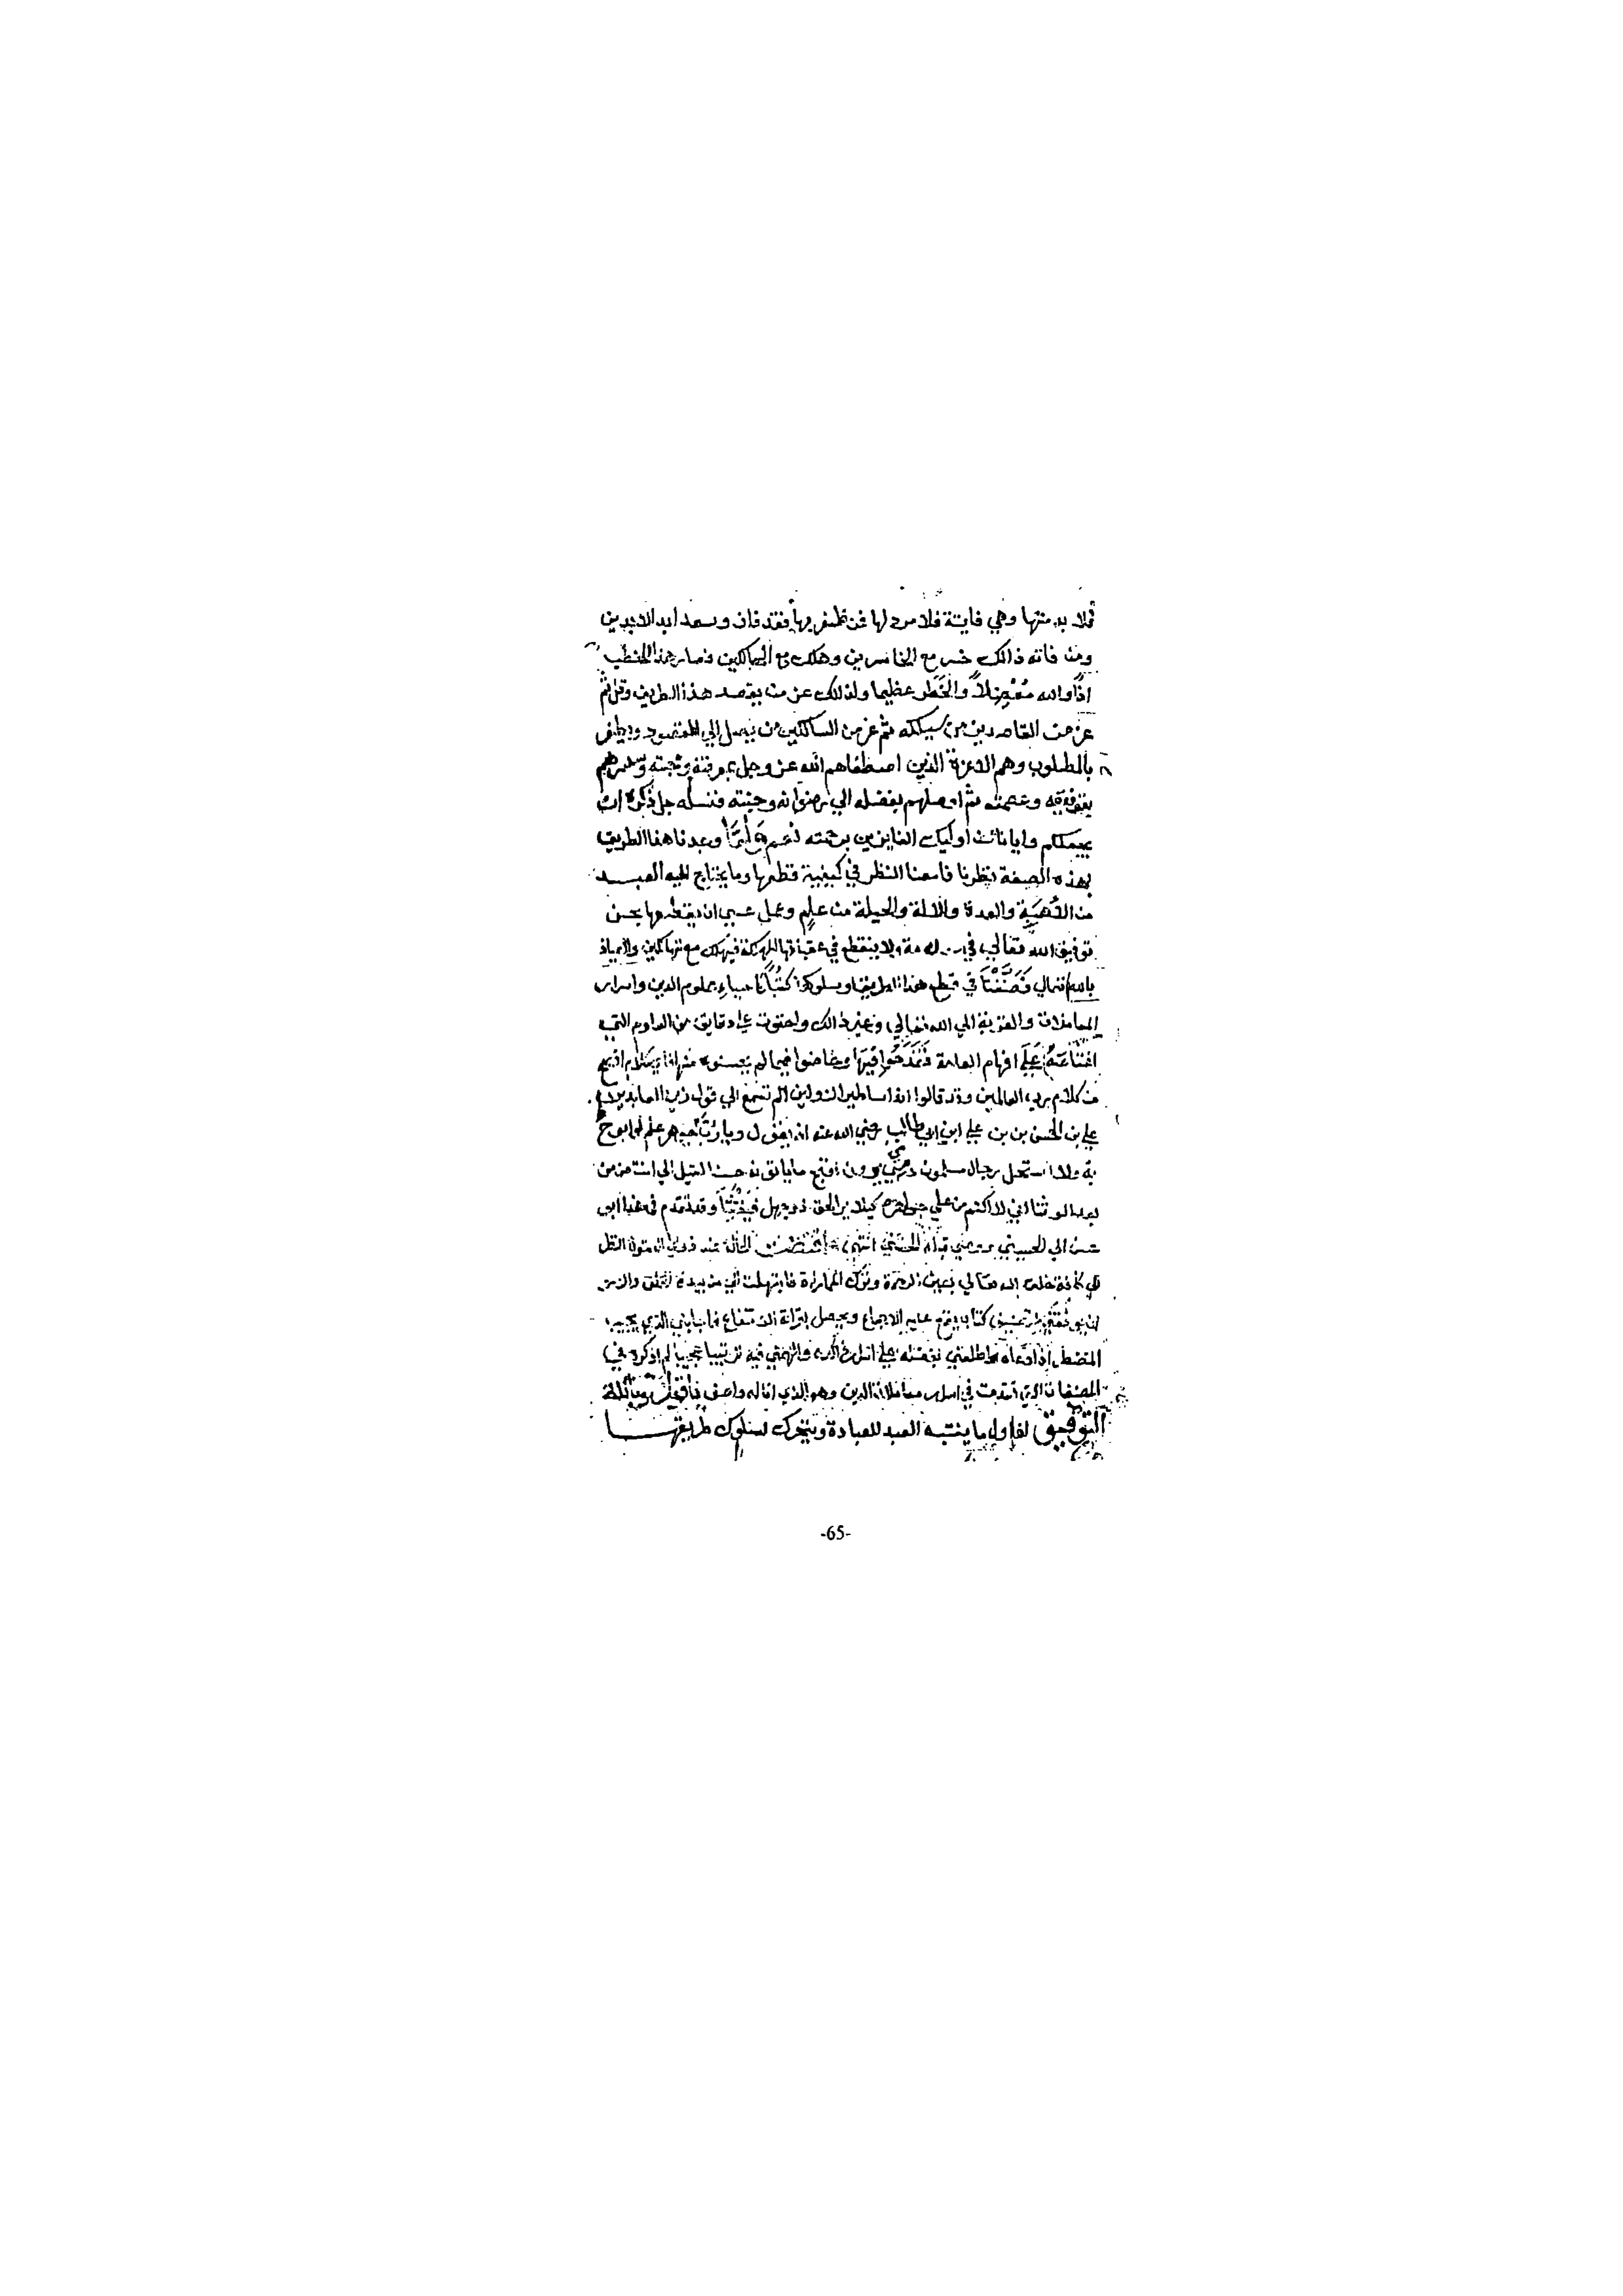 فلا بد منها وهي فايتة فلا مرد لها فمن ظفر بها فقد فاز وسعد ابد الابدين
ومن فاته ذالك خسر مع الخاسرين وهلك مع الهالكين فصار هذا الخطب
اذًا والله معضلاً والخطر عظيما ولذلك عز من يقصد هذا الطريق وقل ثم
عز من القاصدين من يسلكه ثم عز من السالكين من يصل الي المقصود ويظفر
بالمطلوب وهم الاعزة الذين اصطفاهم الله عز وجل بمعرفته ومحبته
بتوفيقه وعصمته ثم اوصلهم بفضله الي رضوانه وجنته فنسله جل ذكره ان
يجعلكم وايانا من اوليك الفايزين برحمته نعم ولما وجدنا هذا الطريق
بهذه الصفة نظرنا فامعنا النظر في كيفية قطعها وما يحتاج اليه العبد
من الأهبة والعدة والالة والحيلة من علم وعمل عسي ان يقطعها بحسن
توفيق الله تعالي في ولا ينقطع في عقباتها المهلكة فيهلك مع الهالكين والعياذ
بالله تعالي فصنفنا في قطع هذا الطريق وسلوكه كتبا كاحياء علوم الدين واسرار
المعاملات والقربة الي الله تعالي وغير ذالك واحتوت علي دقايق من العلوم التي
علي افهام العامة فقدحوا فيها وخاضوا فيما لم يحسنوه منها فاي كلام افصح
من كلام رب العالمين وقد قالوا انه اساطير الاولين الم تسمع الي قول زين العابدين
علي بن الحسين بن علي ابن ابي طالب رضي الله عنه انه يقول ويا رب جوهر علم لو ابوح
به ولا استحل رجال مسلمون دمي يرون اقبح ما ياتونه حسنا
اني لا اكتم من علمي جواهره كيلا يري الحق ذو جهل فيفتتنا وقد تقدم في هذا ابو
حسن الي الحسين ووصي قبله الحسن انتهي واقتضت الحالة عند ذوي الدين النظر
الي كافة خلق الله تعالي بعين الرحمة وترك المماراة فابتهلت الي من بيده الخلق والامر
ان يوفقني لتصنيف كتاب يقع عليه الاجماع ويحصل بقراءته الانتفاع فاجابني الذي يجيب
المضطر إذا دعاه واطلعني بفضله علي اسرار ذالك والهمني فيه ترتيبا عجيبا لم اذكره في
المصنفات التي تقدمت في اسرار معاملات الدين وهو الذي انا له واصف فاقول وبالله
التوفيق ان اول ما يتنبه العبد للعبادة ويتحرك لسلوك طريقها
-65-